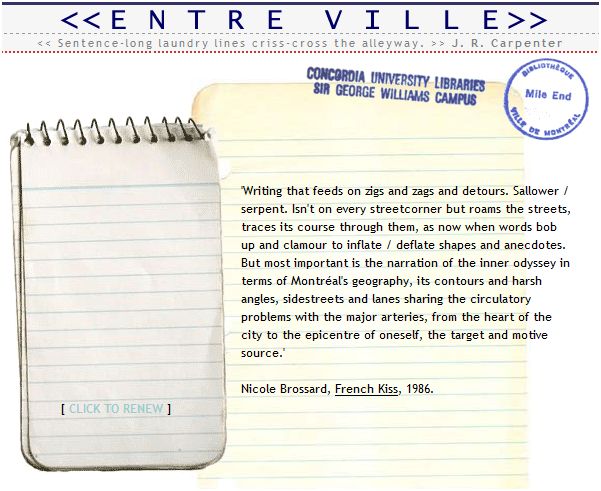 <<ENTRE VILLE>>
<< Sentence-long laundry lines criss-cross the alleyway. >> J. R. Carpenter
CONCORDIA UNIVERSITY LIBRARIES
SIR GEORGE WILLIAMS CAMPUS
BIBLIOTHÈQUE
Mile End
VILLE DE MONTRÉAL
'Writing that feeds on zigs and zags and detours. Sallower /
serpent. Isn't on every streetcorner but roams the streets,
traces its course through them, as now when words bob
up and clamour to inflate / deflate shapes and anecdotes.
But most important is the narration of the inner odyssey in
terms of Montréal's geography, its contours and harsh
angles, sidestreets and lanes sharing the circulatory
problems with the major arteries, from the heart of the
city to the epicentre of oneself, the target and motive
source.'
Nicole Brossard, French Kiss, 1986.
[ CLICK TO RENEW ]